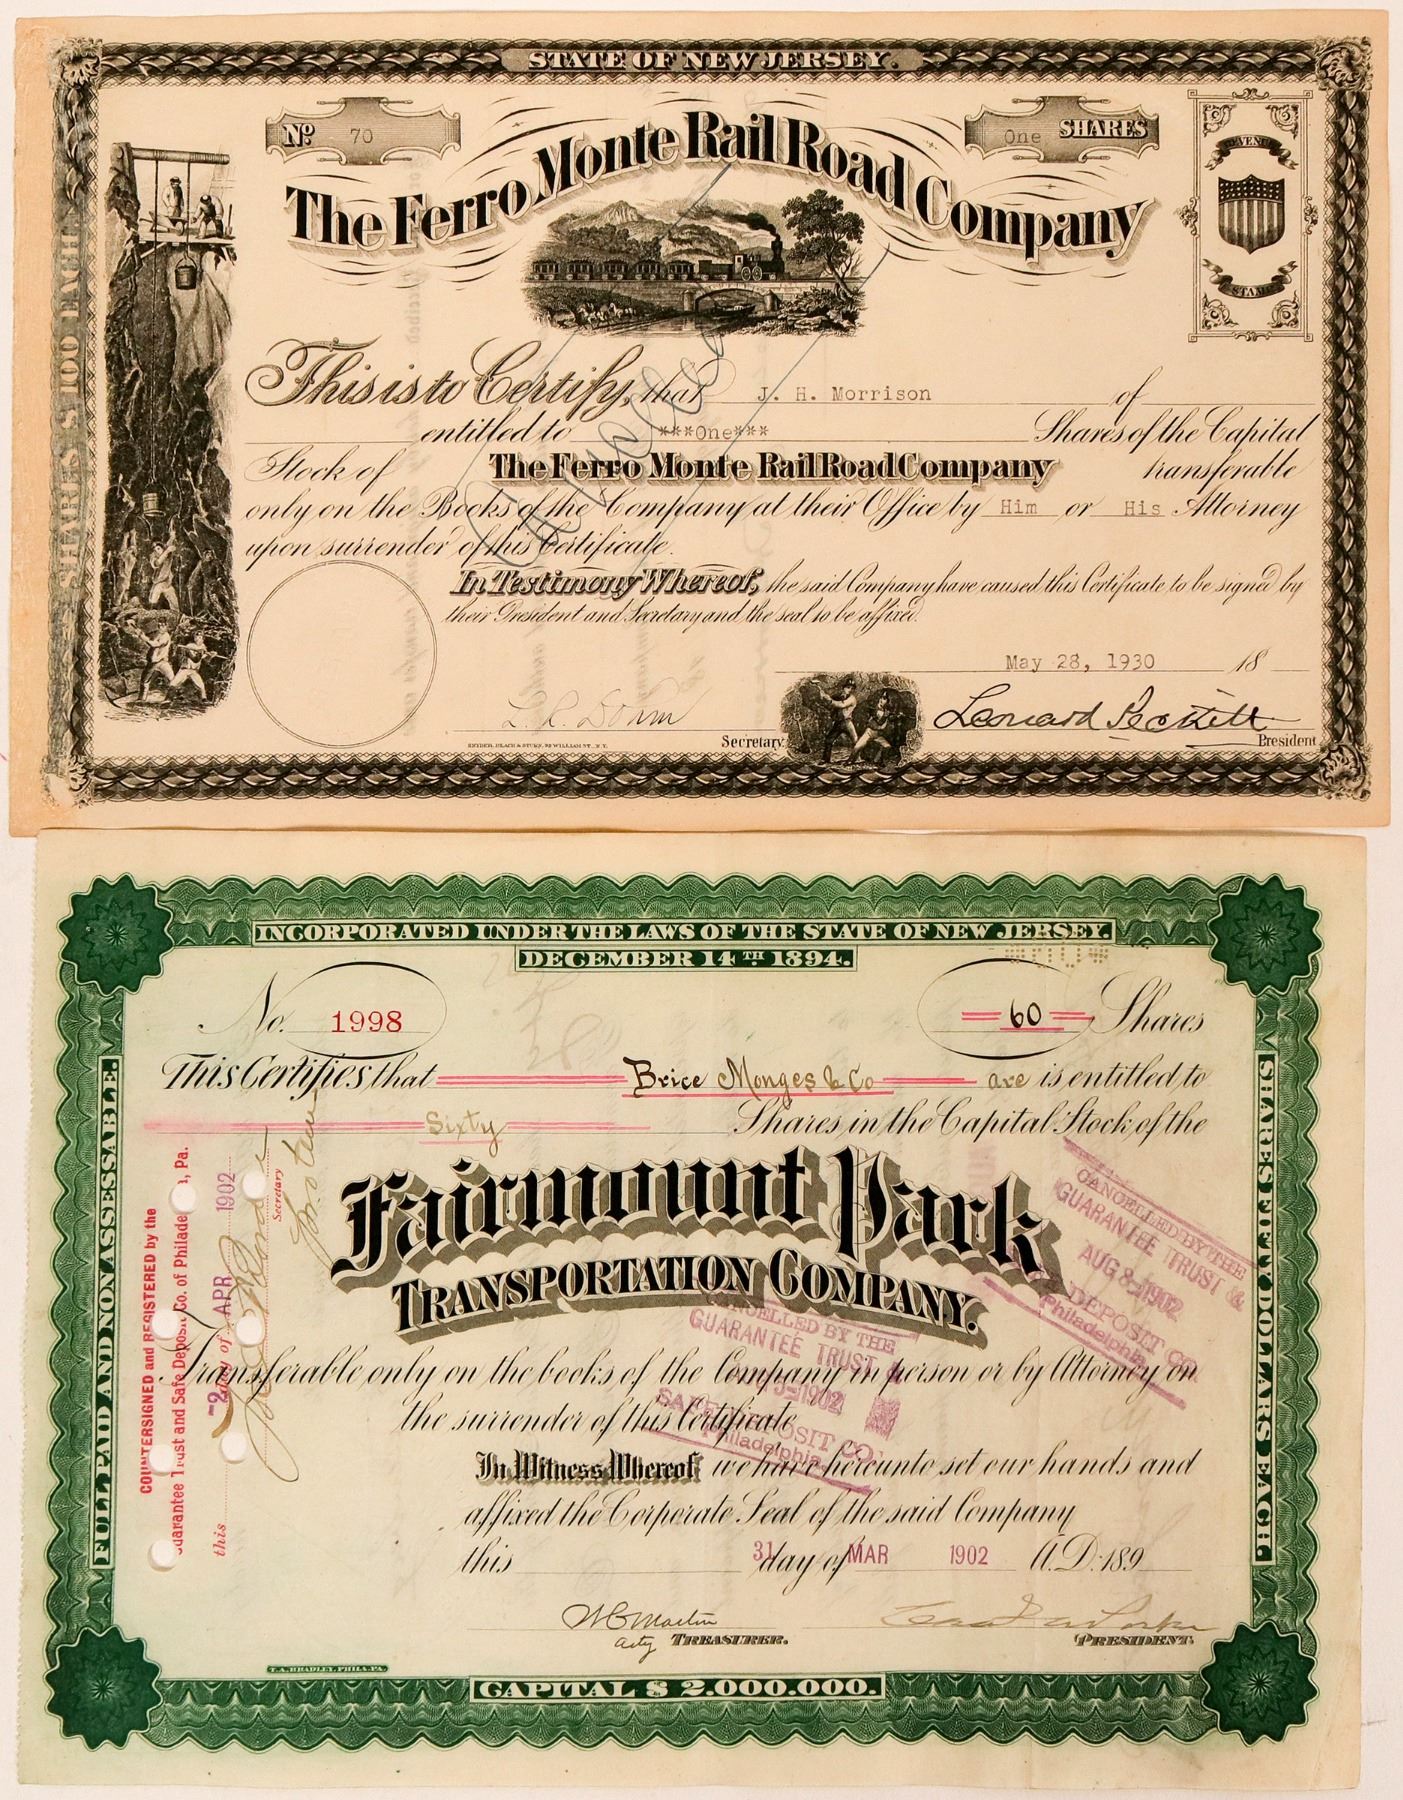 STATE OF NEW JERSEY.
No 70
One SHARES
The Ferro Monte Rail Road Company
REVENUE
STAMP
SHARES $100 EACH
This is to Certify, that J. H. Morrison of
entitled to ***One*** Shares of the Capital
Stock of The Ferro Monte Rail Road Company transferable
only on the Books of the Company at their Office by Him or His Attorney
upon surrender of this Certificate.
Cancelled
In Testimony Whereof, the said Company have caused this Certificate to be signed by
their President and Secretary and the seal to be affixed.
May 28, 1930 18
Secretary
Leonard Peckitt
President
SNYDER, BLACK & STURN, 92 WILLIAM ST. N.Y.
INCORPORATED UNDER THE LAWS OF THE STATE OF NEW JERSEY.
DECEMBER 14TH 1894.
No. 1998
60 Shares
This Certifies that Brice Monges & Co are is entitled to
Sixty Shares in the Capital Stock of the
Fairmount Park
TRANSPORTATION COMPANY.
Transferable only on the books of the Company in person or by Attorney on
the surrender of this Certificate
In Witness Whereof we have hereunto set our hands and
affixed the Corporate Seal of the said Company
this 31 day of MAR 1902 A.D. 189
TREASURER.
PRESIDENT.
T.A. BRADLEY, PHILA. PA.
CAPITAL $ 2.000.000.
FULL PAID AND NON ASSESSABLE.
SHARES FIFTY DOLLARS EACH.
COUNTERSIGNED and REGISTERED by the
Guarantee Trust and Safe Deposit Co. of Philade a, Pa.
this -2 day of APR 1902
Secretary
CANCELLED BY THE
GUARANTEE TRUST &
AUG 8-1902
DEPOSIT CO.
Philadelphia
CANCELLED BY THE
GUARANTEE TRUST &
1902
SAFE DEPOSIT CO.
Philadelphia